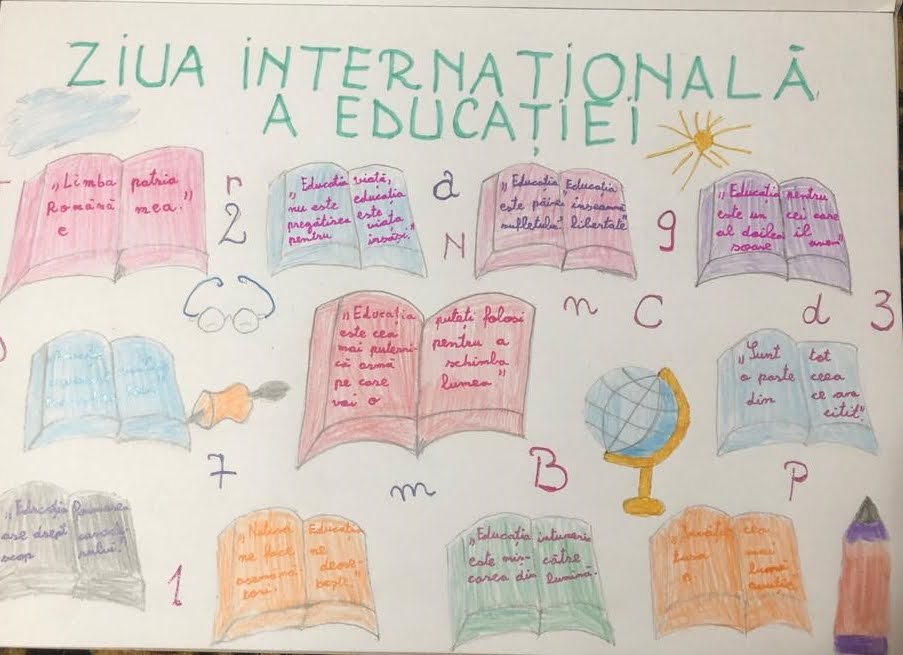 ZIUA INTERNAȚIONALĂ
A EDUCAȚIEI
„Limba
Română
e
patria
mea."
r
2
„Educația
nu este
pregătirea
pentru
viată,
educația
este
viața
însăși."
a
N
„Educația
este pâinea
sufletului"
Educația
înseamnă
libertate"
9
„Educația
este un
al doilea
soare
pentru
cei care
îl
aveau"
n
C
d
3
„Educația
este cea
mai puterni-
că armă
pe care
vei o
puteți folosi
pentru a
schimba
lumea"
„Sunt
o parte
din
tot
ceea
ce am
citit."
7
m
B
P
„Educația
are drept
scop
formarea
caracte
rului."
1
„Natura
ne face
asemănă-
tori.
Educația
ne
deose-
bește."
„Educația
este miș-
carea din
întuneric
către
lumină.
cea
mai